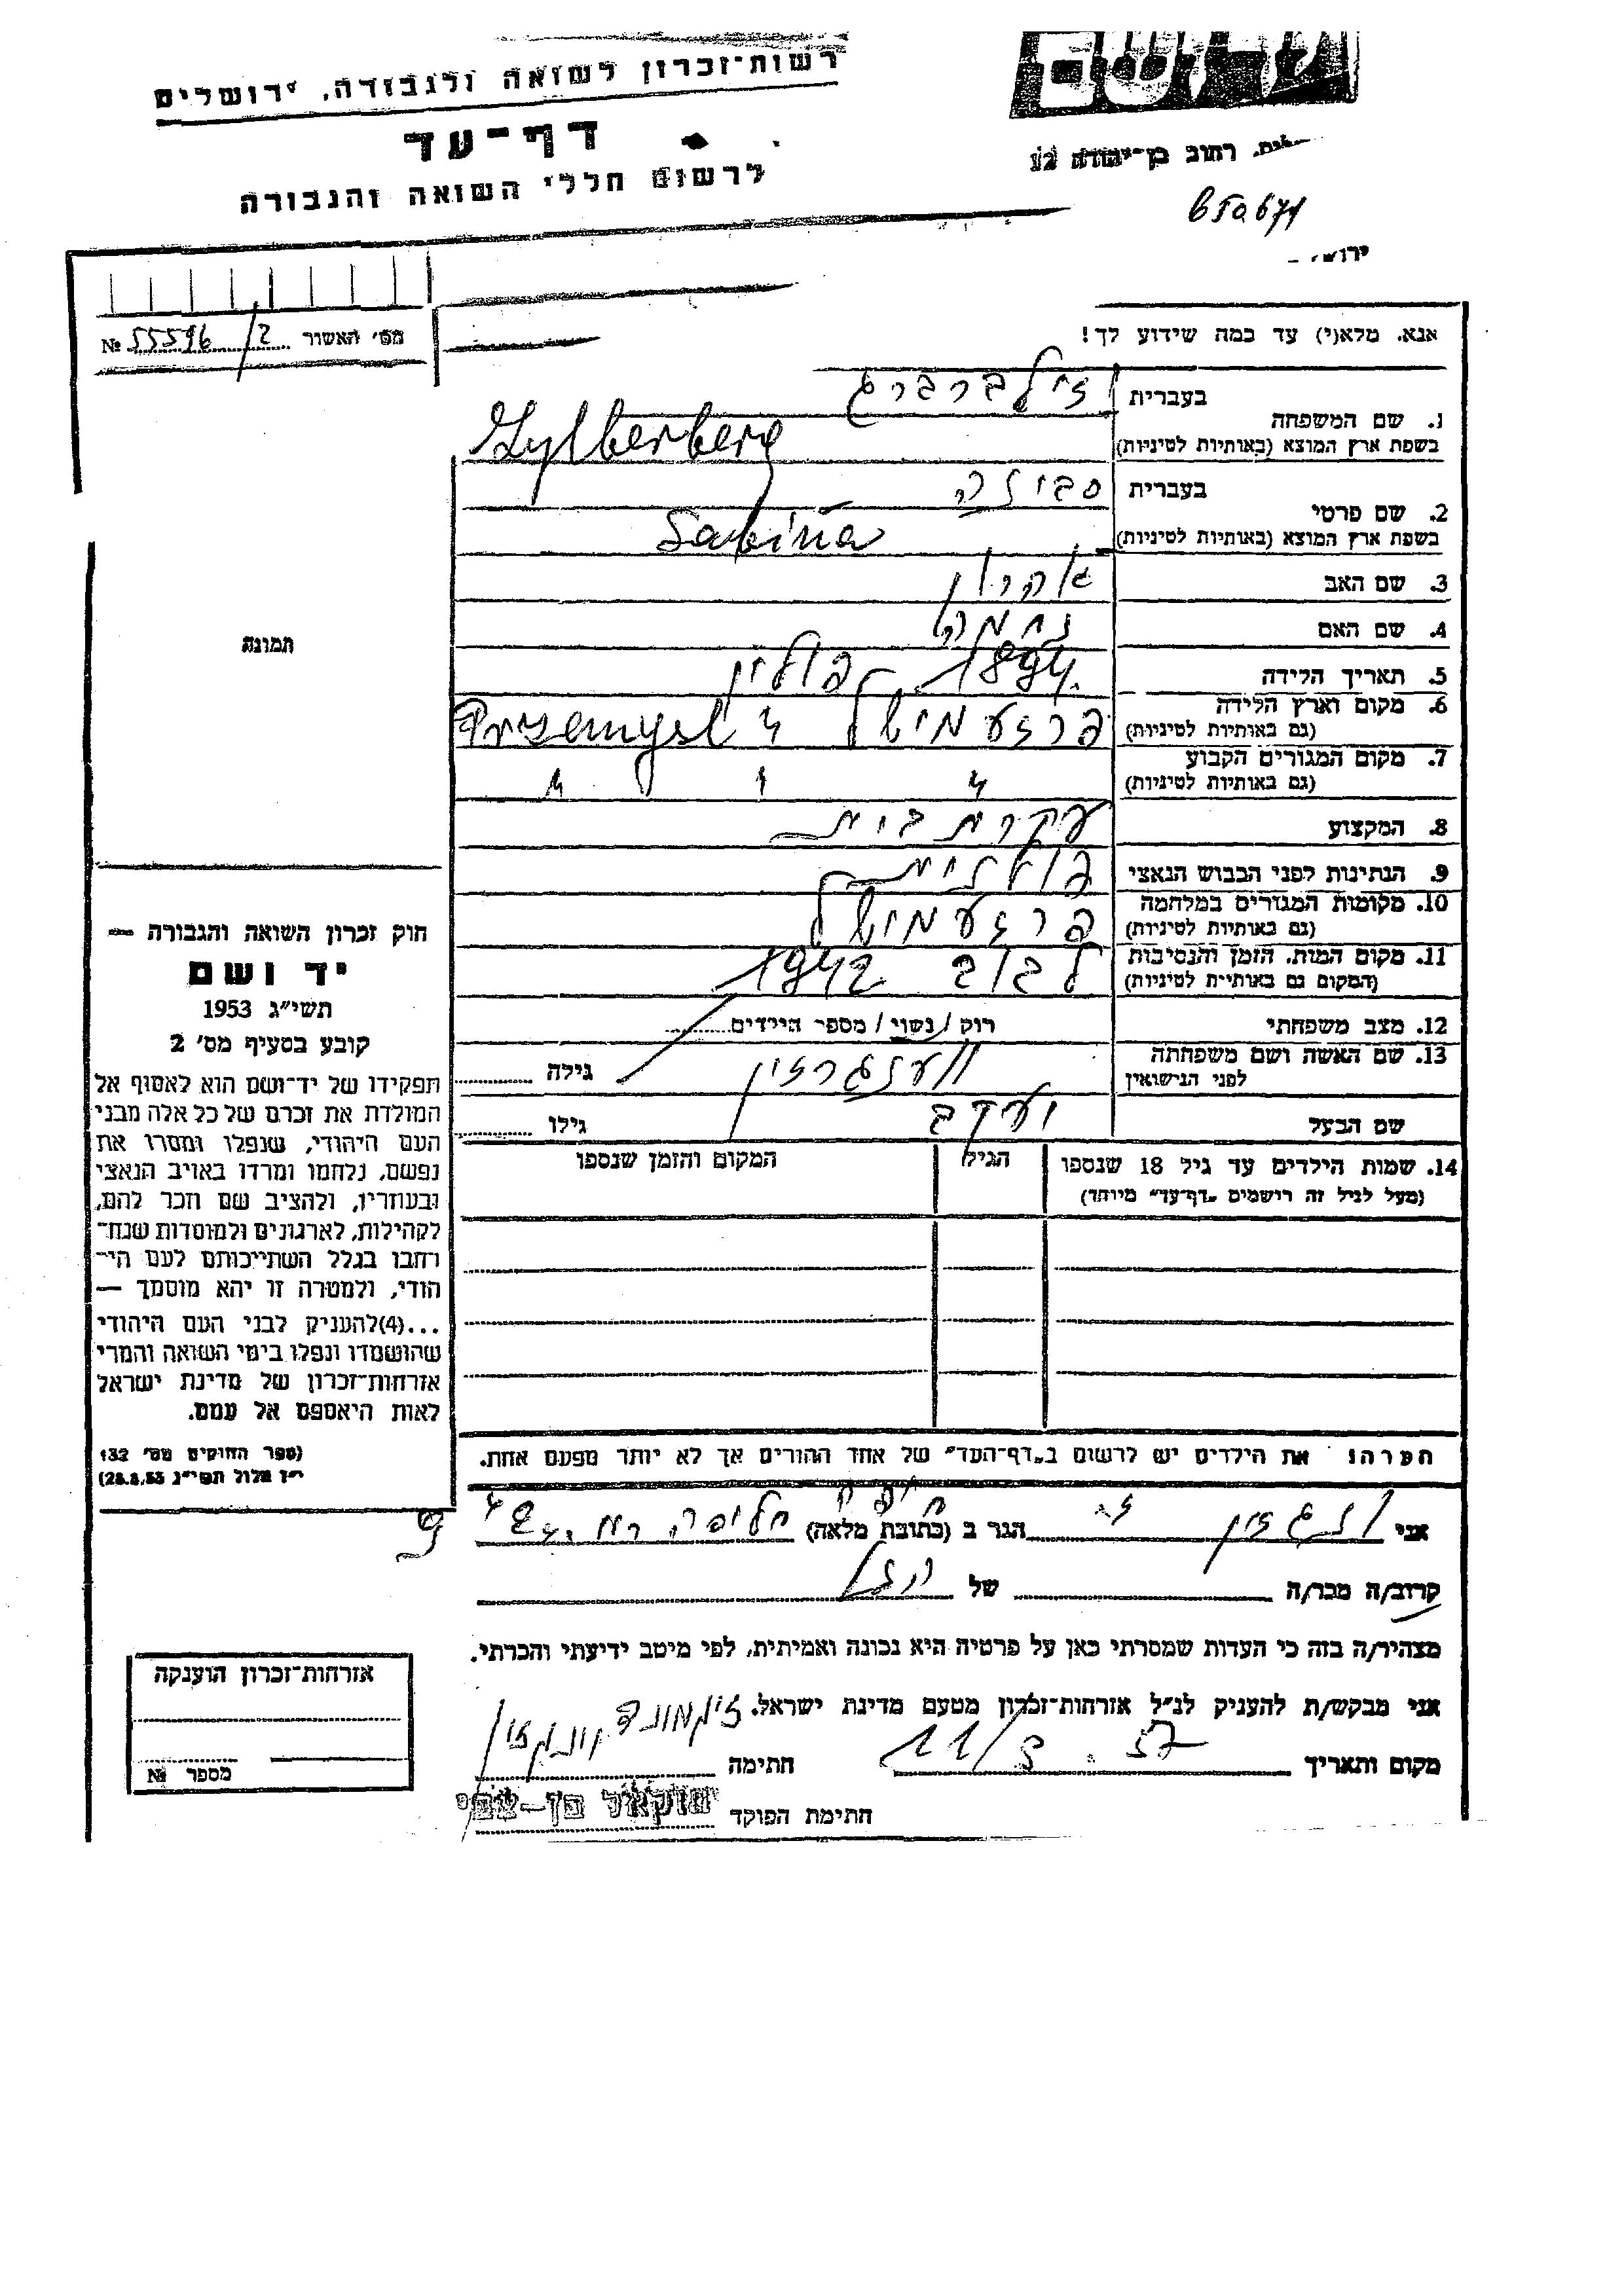 רשות־זכרון לשואה ולגבורה, ירושלים
דף־עד
לרשום חללי השואה והגבורה
רחוב בן־יהודה 12
אנא, מלא(י) עד כמה שידוע לך!
מס׳ האשור 55596/2 №
1. שם המשפחה
בעברית זילברברג
בשפת ארץ המוצא (באותיות לטיניות) Zylberberg
2. שם פרטי
בעברית סבינה
בשפת ארץ המוצא (באותיות לטיניות) Sabina
3. שם האב אהרון
4. שם האם נחמה
5. תאריך הלידה 1894 פולין
6. מקום וארץ הלידה
(גם באותיות לטיניות) פרזעמישל Przemysl
7. מקום המגורים הקבוע
(גם באותיות לטיניות)
8. המקצוע עקרת בית
9. הנתינות לפני הכבוש הנאצי פולנית
10. מקומות המגורים במלחמה
(גם באותיות לטיניות) פרזעמישל
11. מקום המות, הזמן והנסיבות
(המקום גם באותיות לטיניות) לבוב 1942
12. מצב משפחתי רוק / נשוי / מספר הילדים
13. שם האשה ושם משפחתה
לפני הנישואין גילה
שם הבעל יעקב גילו
14. שמות הילדים עד גיל 18 שנספו
(מעל לגיל זה רושמים „דף־עד״ מיוחד)
הגיל
המקום והזמן שנספו
תמונה
חוק זכרון השואה והגבורה —
יד ושם
תשי״ג 1953
קובע בסעיף מס׳ 2
תפקידו של יד־ושם הוא לאסוף אל
המולדת את זכרם של כל אלה מבני
העם היהודי, שנפלו ומסרו את
נפשם, נלחמו ומרדו באויב הנאצי
ובעוזריו, ולהציב שם וזכר להם,
לקהילות, לארגונים ולמוסדות שנח־
רחבו בגלל השתייכותם לעם הי־
הודי, ולמטרה זו יהא מוסמך —
...(4) להעניק לבני העם היהודי
שהושמדו ונפלו בימי השואה והמרי
אזרחות־זכרון של מדינת ישראל
לאות היאספם אל עמם.
(ספר החוקים מס׳ 132
י״ז אלול תשי״ג 28.8.53)
הערה: את הילדים יש לרשום ב„דף־העד״ של אחד ההורים אך לא יותר מפעם אחת.
אני הגר ב (כתובת מלאה) חיפה
קרוב/ה מכר/ה של
מצהיר/ה בזה כי העדות שמסרתי כאן על פרטיה היא נכונה ואמיתית, לפי מיטב ידיעתי והכרתי.
אני מבקש/ת להעניק לנ״ל אזרחות־זכרון מטעם מדינת ישראל.
מקום ותאריך 57 חתימה זיגמונד
חתימת הפוקד
אזרחות־זכרון הוענקה
מספר №